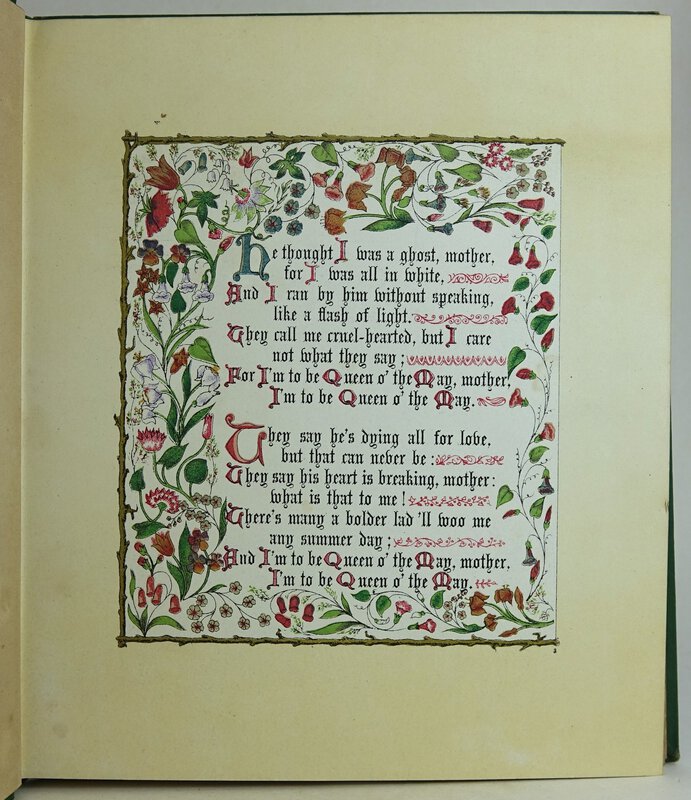 He thought I was a ghost, mother,
for I was all in white,
And I ran by him without speaking,
like a flash of light.
They call me cruel-hearted, but I care
not what they say;
For I'm to be Queen o' the May, mother,
I'm to be Queen o' the May.
They say he's dying all for love,
but that can never be:
They say his heart is breaking, mother:
what is that to me!
There's many a bolder lad 'll woo me
any summer day;
And I'm to be Queen o' the May, mother,
I'm to be Queen o' the May.